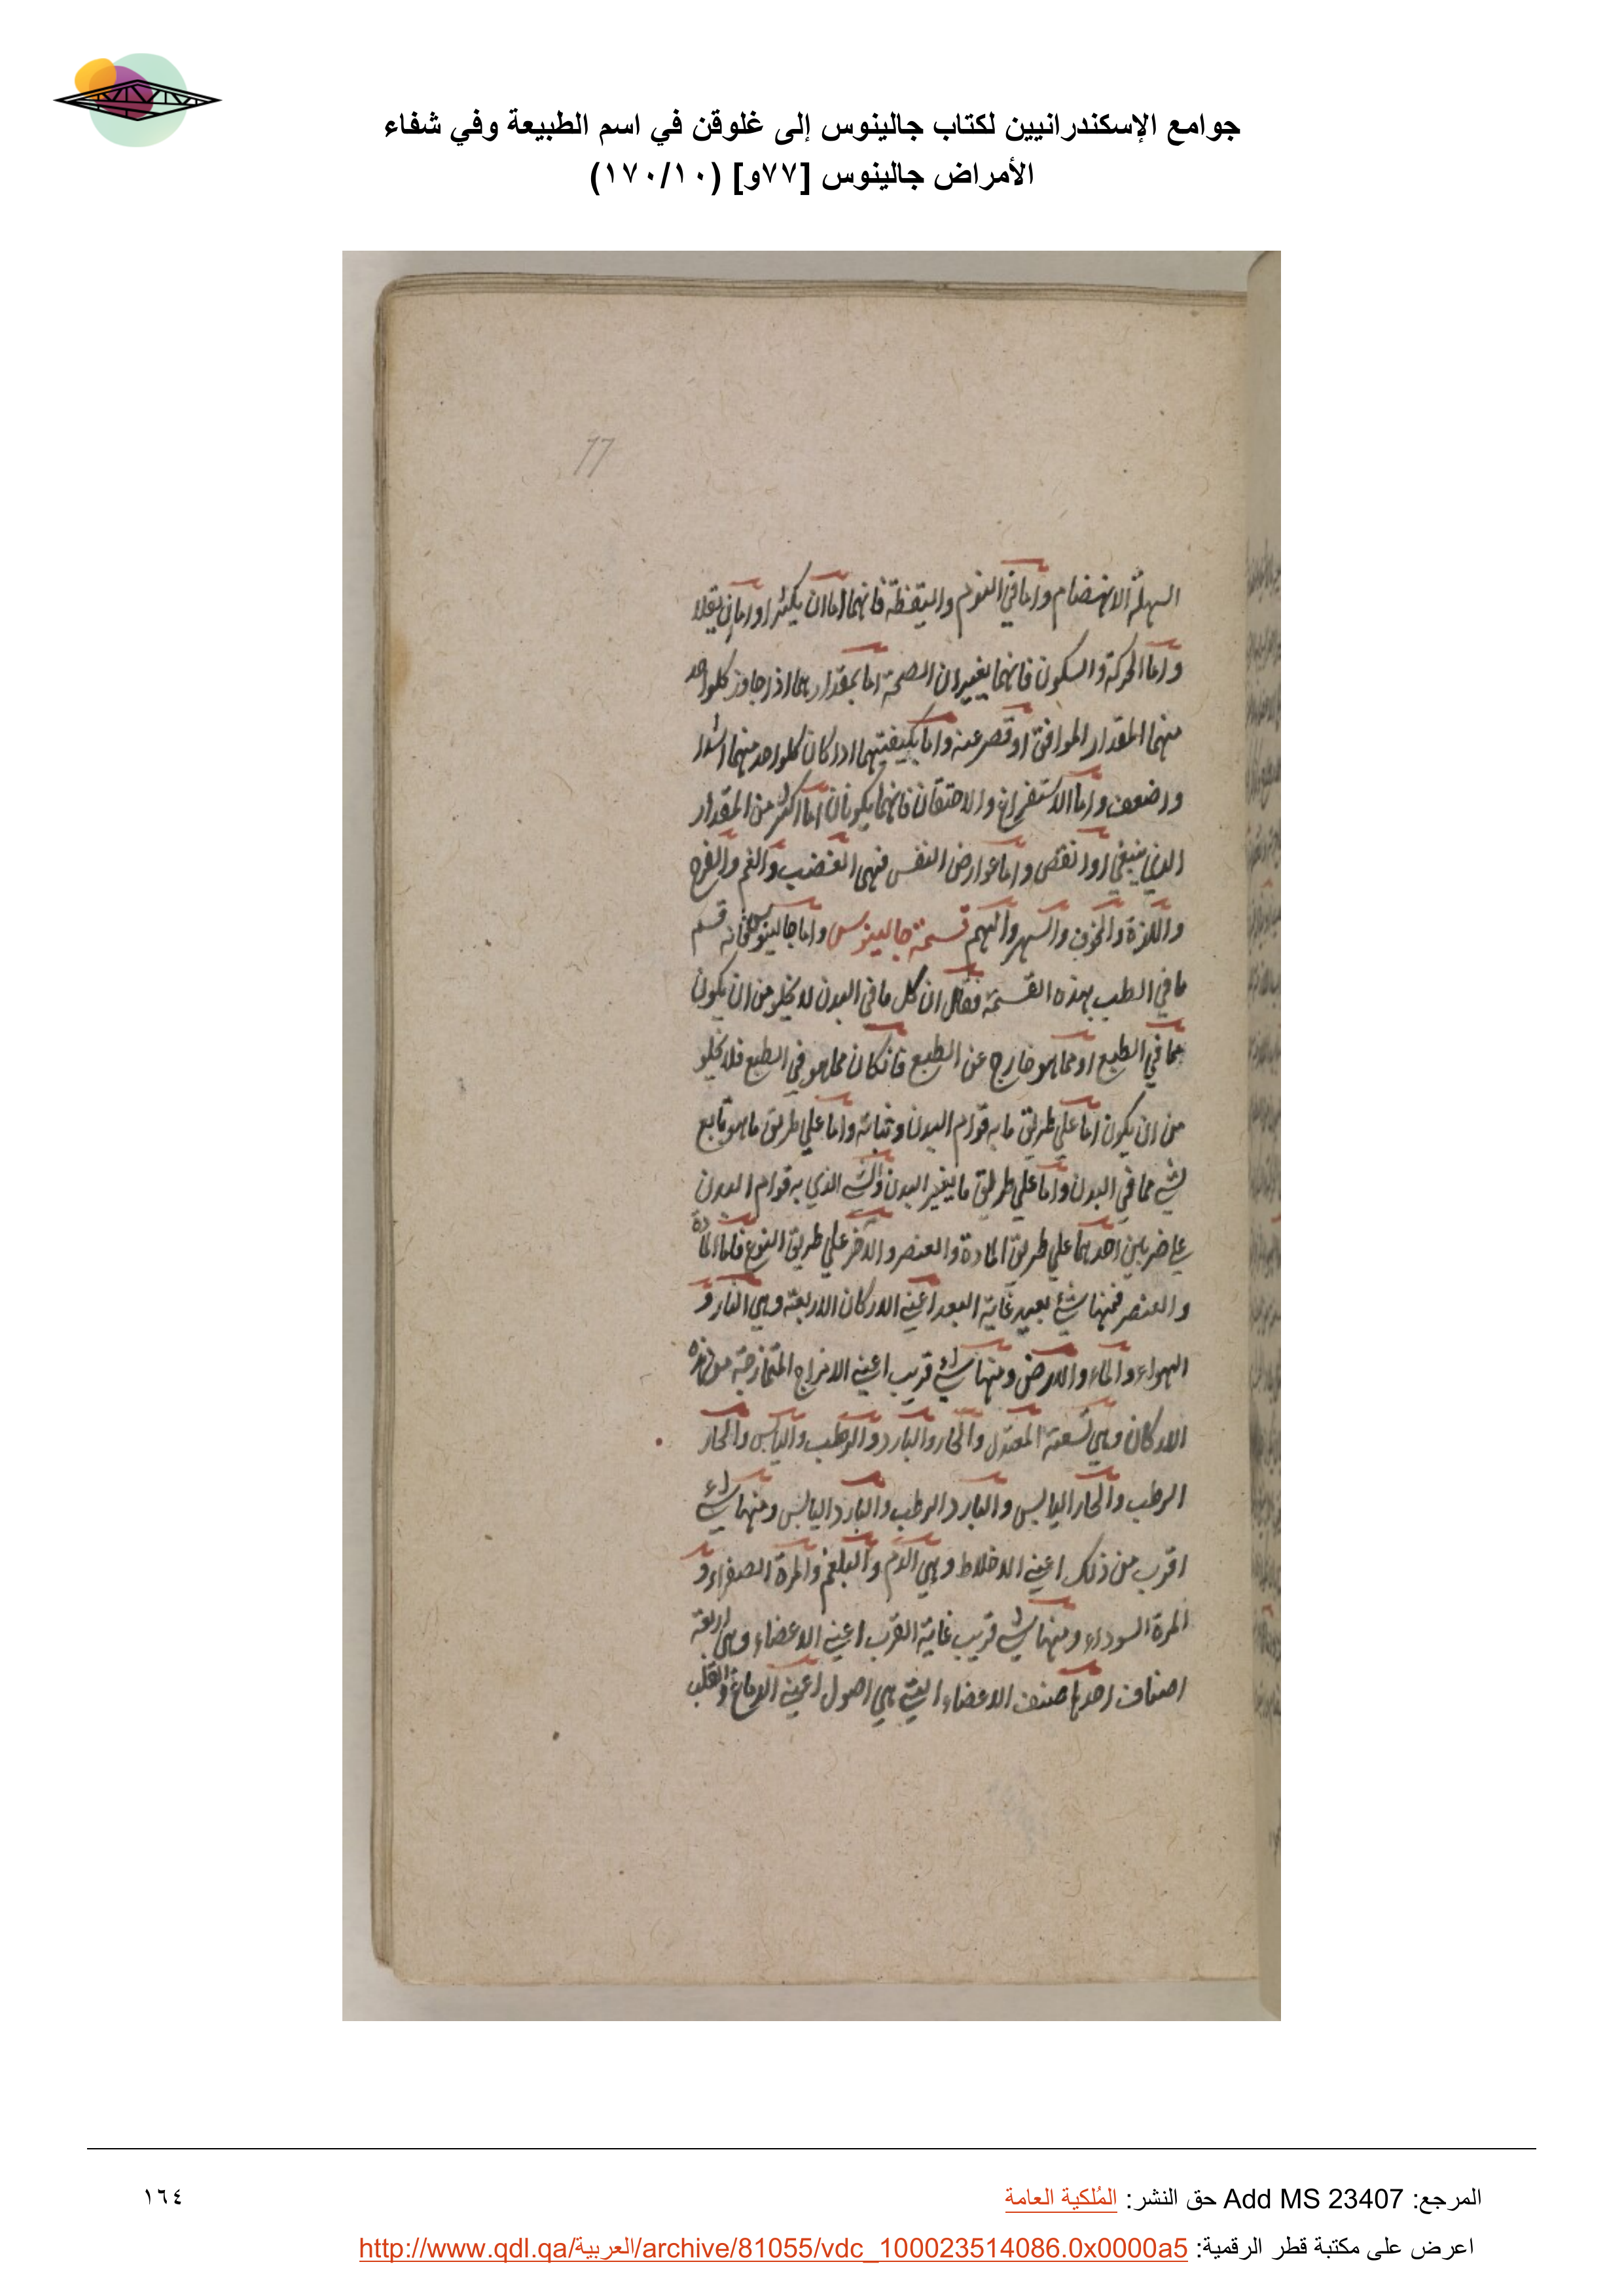 جوامع الإسكندرانيين لكتاب جالينوس إلى غلوقن في اسم الطبيعة وفي شفاء
الأمراض جالينوس [٧٧و] (١٧٠/١٠)
77
السهلة الانهضام واما في النوم واليقظة فانهما اما ان يكثرا واما ان يقلا
واما الحركة والسكون فانهما يغيران الصحة اما بمقدارهما اذا جاوز كلواحد
منهما المقدار الموافق او قصر عنه واما بكيفيتهما اذا كان كلواحد منهما اشد
او اضعف واما الاستفراغ والاحتقان فانهما يكونان اما اكثر من المقدار
الذي ينبغي او انقص واما عوارض النفس فهي الغضب والغم والفرح
واللذة والخوف والسهر والهم قسمة جالينوس واما جالينوس فانه قسم
ما في الطب بهذه القسمة فقال ان كل ما في البدن لا يخلو من ان يكون
مما في الطبع او مما هو خارج عن الطبع فان كان مما هو في الطبع فلا يخلو
من ان يكون اما علي طريق ما به قوام البدن وثباته واما علي طريق ما هو تابع
لشي مما في البدن واما علي طريق ما يغير البدن والشي الذي به قوام البدن
علي ضربين احدهما علي طريق المادة والعنصر والاخر علي طريق النوع فاما المادة
والعنصر فمنها شي بعيد غاية البعد اعني الاركان الاربعة وهي النار و
الهواء والماء والارض ومنها شي قريب اعني الامزاج الممتزجة من هذه
الاركان وهي تسعة المعتدل والحار والبارد والرطب واليابس والحار
الرطب والحار اليابس والبارد الرطب والبارد اليابس ومنها شي
اقرب من ذلك اعني الاخلاط وهي الدم والبلغم والمرة الصفراء و
المرة السوداء ومنها شي قريب غاية القرب اعني الاعضاء وهي اربعة
اصناف احدها صنف الاعضاء التي هي اصول اعني الدماغ والقلب
المرجع: Add MS 23407 حق النشر: المُلكية العامة
١٦٤
اعرض على مكتبة قطر الرقمية: http://www.qdl.qa/العربية/archive/81055/vdc_100023514086.0x0000a5